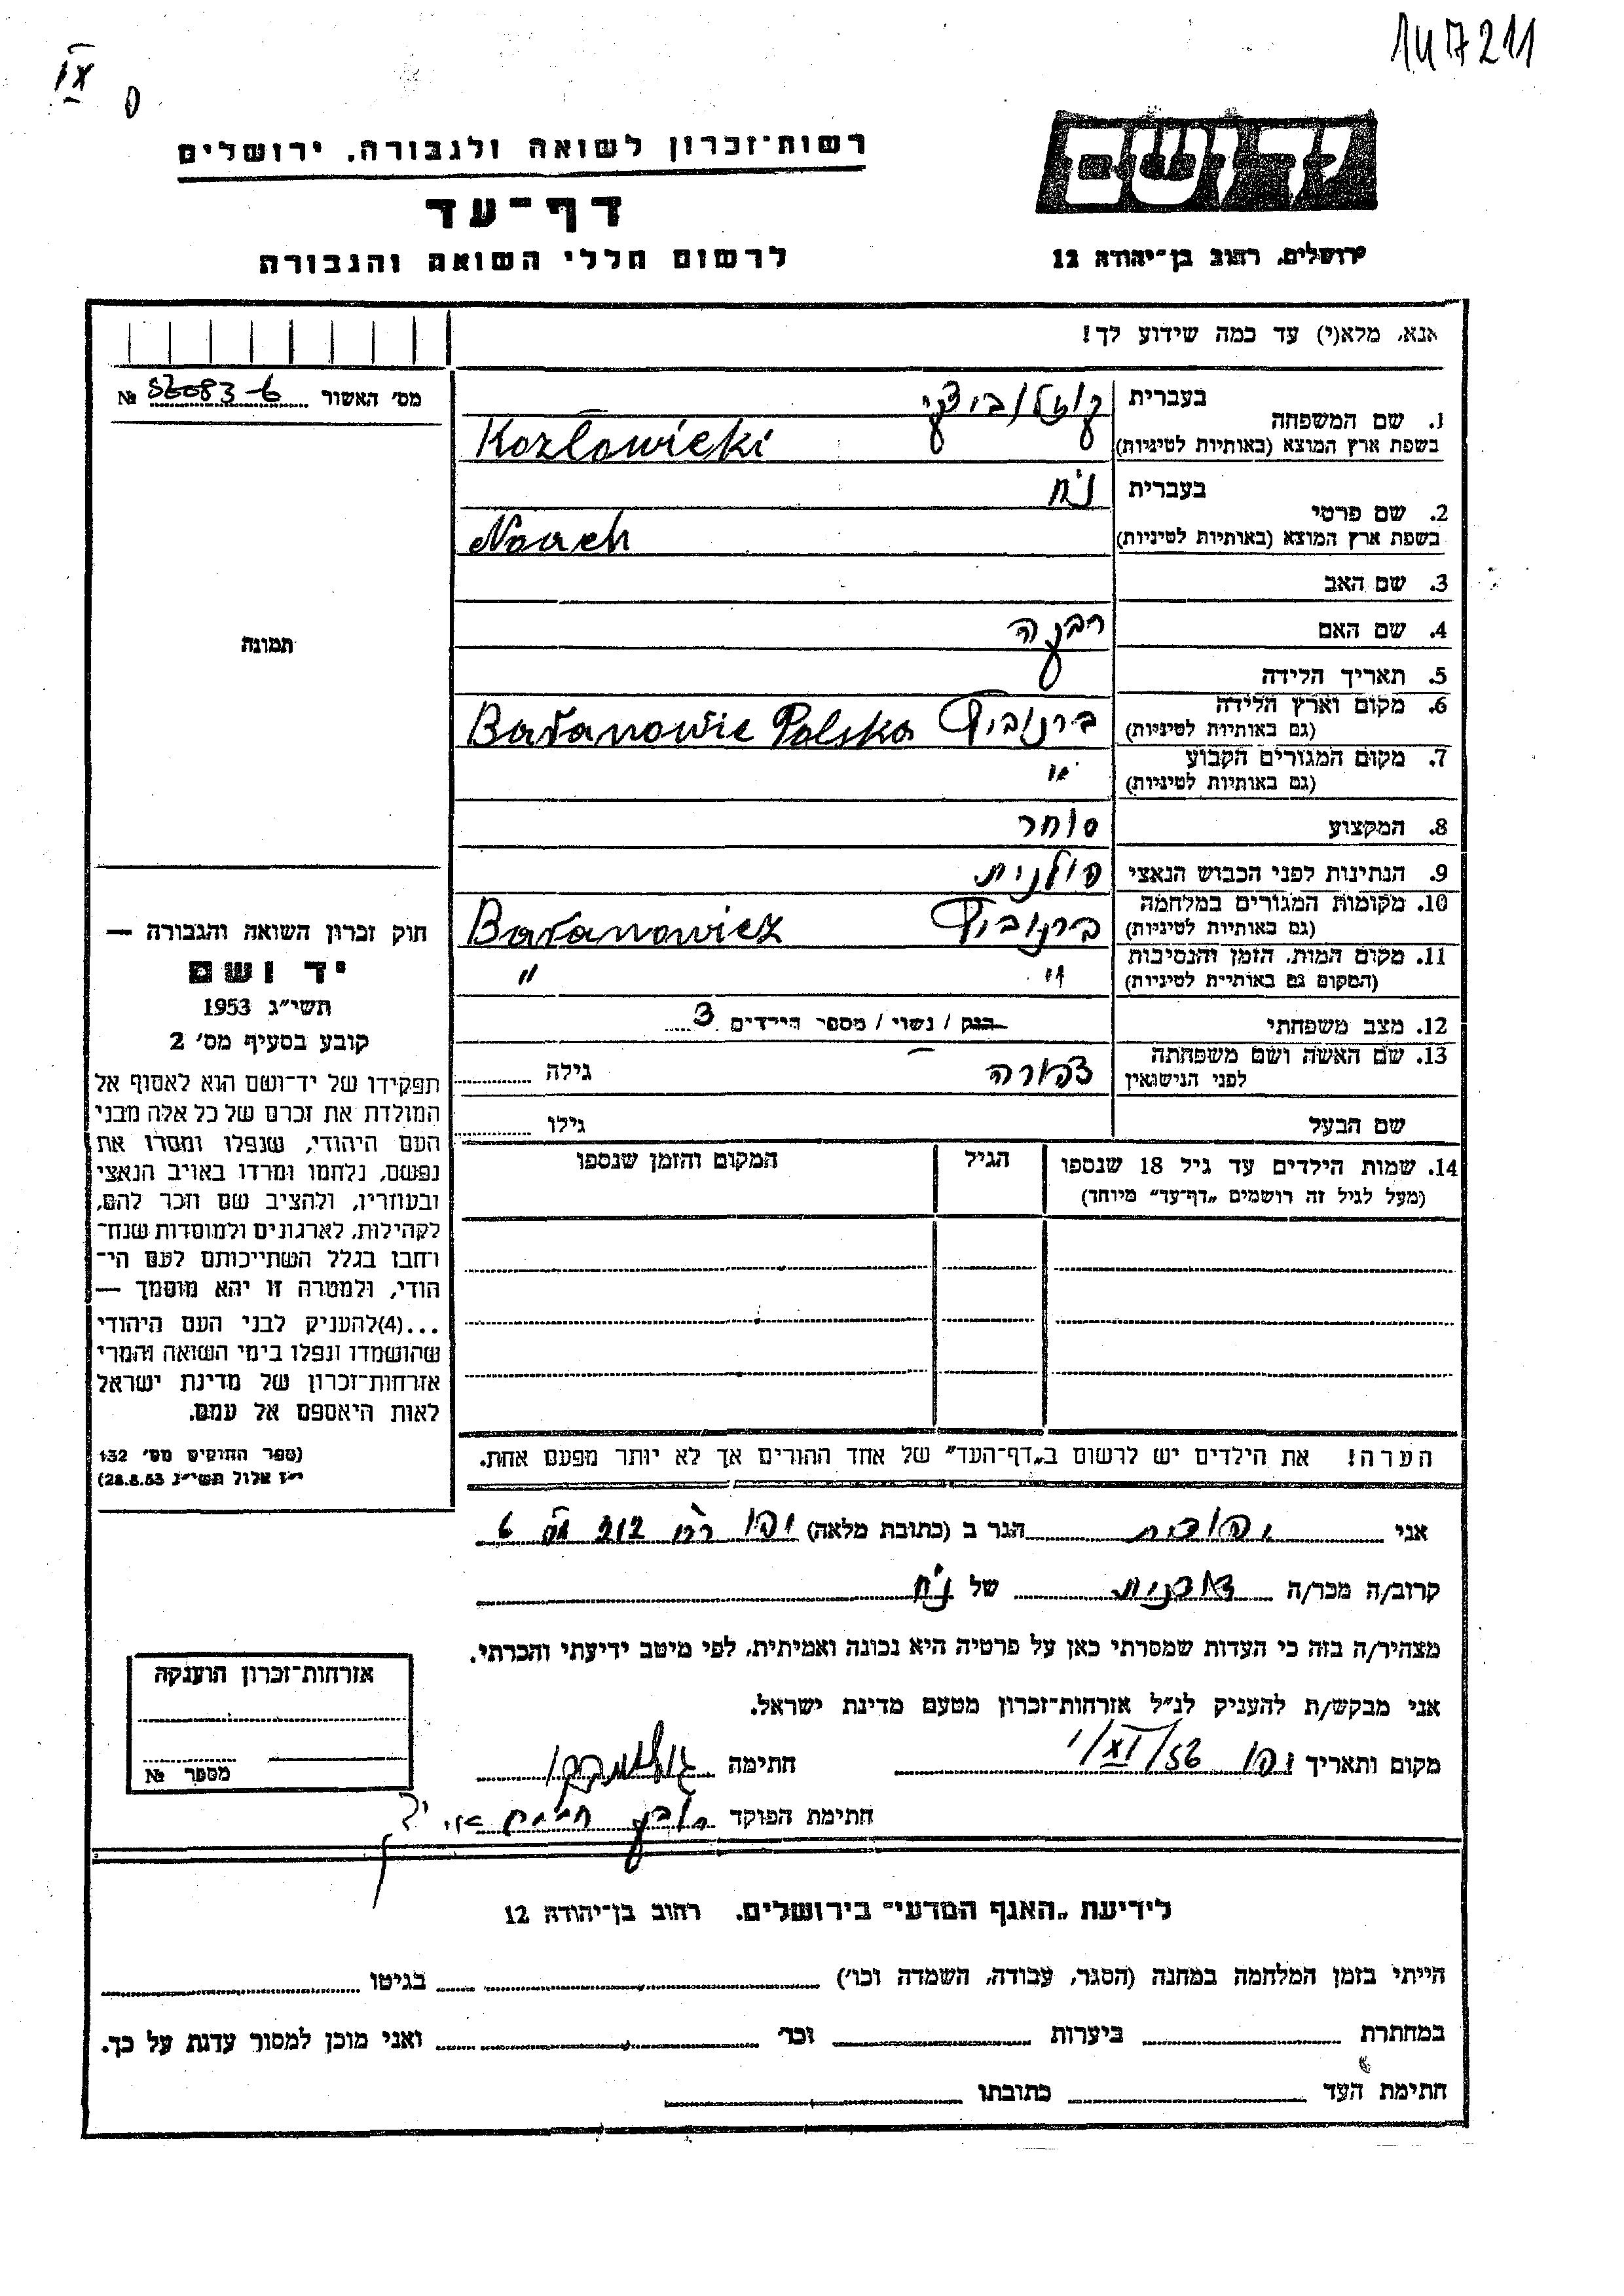 1417211
IX
רשות־זכרון לשואה ולגבורה, ירושלים
דף־עד
לרשום חללי השואה והגבורה
ידושם
ירושלים, רחוב בן־יהודה 12
אנא, מלא(י) עד כמה שידוע לך!
מס׳ האשור № 
1. שם המשפחה
בעברית קוזלוביצקי
בשפת ארץ המוצא (באותיות לטיניות) Kozłowicki
2. שם פרטי
בעברית נח
בשפת ארץ המוצא (באותיות לטיניות) Noach
3. שם האב
4. שם האם
5. תאריך הלידה
6. מקום וארץ הלידה
(גם באותיות לטיניות) ברנוביץ Baranowic Polska
7. מקום המגורים הקבוע
(גם באותיות לטיניות) "
8. המקצוע סוחר
9. הנתינות לפני הכבוש הנאצי פולנית
10. מקומות המגורים במלחמה
(גם באותיות לטיניות) ברנוביץ Baranowicz
11. מקום המות, הזמן והנסיבות
(המקום גם באותיות לטיניות) " "
12. מצב משפחתי רווק / נשוי / מספר הילדים 3
13. שם האשה ושם משפחתה
לפני הנישואין צפורה גילה
שם הבעל גילו
14. שמות הילדים עד גיל 18 שנספו
(מעל לגיל זה רושמים „דף־עד” מיוחד)
הגיל
המקום והזמן שנספו
הערה! את הילדים יש לרשום ב„דף־העד” של אחד ההורים אך לא יותר מפעם אחת.
תמונה
חוק זכרון השואה והגבורה —
יד ושם
תשי״ג 1953
קובע בסעיף מס׳ 2
תפקידו של יד־ושם הוא לאסוף אל
המולדת את זכרם של כל אלה מבני
העם היהודי, שנפלו ומסרו את
נפשם, נלחמו ומרדו באויב הנאצי
ובעוזריו, ולהציב שם וזכר להם,
לקהילות, לארגונים ולמוסדות שנח־
רחבו בגלל השתייכותם לעם הי־
הודי, ולמטרה זו יהא מוסמך —
...(4)להעניק לבני העם היהודי
שהושמדו ונפלו בימי השואה והמרי
אזרחות־זכרון של מדינת ישראל
לאות היאספם אל עמם.
(ספר החוקים מס׳ 132
י״ז אלול תשי״ג 28.8.53)
אני יהודית הגר ב (כתובת מלאה) יפו
קרוב/ה מכר/ה של נח
מצהיר/ה בזה כי העדות שמסרתי כאן על פרטיה היא נכונה ואמיתית, לפי מיטב ידיעתי והכרתי.
אני מבקש/ת להעניק לנ״ל אזרחות־זכרון מטעם מדינת ישראל.
מקום ותאריך יפו 1/XI/56 חתימה
חתימת הפוקד
אזרחות־זכרון הוענקה
מספר №
לידיעת „האגף המדעי” בירושלים, רחוב בן־יהודה 12
הייתי בזמן המלחמה במחנה (הסגר, עבודה, השמדה וכו׳) בגיטו
במחתרת ביערות וכו׳ ואני מוכן למסור עדות על כך.
חתימת העד כתובתו